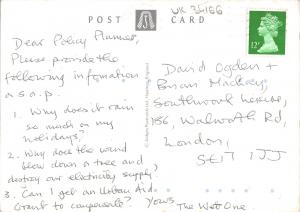 UK 35166
POST CARD
12P
Dear Policy Planner,
Please provide the
following information
a.s.a.p.
1. Why doesn't it rain
so much on my
holidays?
2. Why does the wind
blow down a tree and
destroy our electricity supply
3. Can I get an Urban Aid
Grant to compensate?
Yours
The Wet One.
David Ogden +
Brian Mackney,
Southwood House,
156, Walworth Rd,
London,
SE17 1JJ